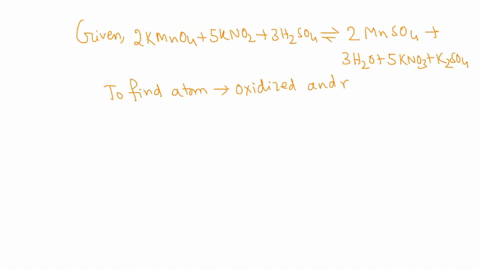 Given, 2KMnO4+5KNO2+3H2SO4⇌ 2 MnSO4 +
3H2O+5KNO3+K2SO4
To find atom → oxidized and r